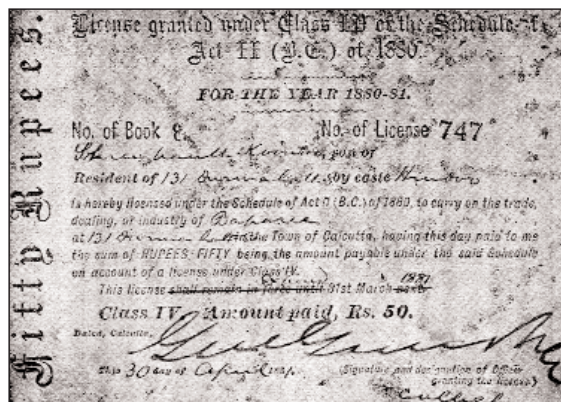 Fifty Rupees.
License granted under Class IV of the Schedule to
Act II (B.C.) of 1880.
FOR THE YEAR 1880-81.
No. of Book 8 No. of License 747
son of
Resident of 131 by caste Hindoo
is hereby licensed under the Schedule of Act II (B.C.) of 1880, to carry on the trade,
dealing, or industry of
at 131 in the Town of Calcutta, having this day paid to me
the sum of RUPEES FIFTY being the amount payable under the said Schedule
on account of a license under Class IV.
This license shall remain in force until 31st March next 1881
Class IV. Amount paid, Rs. 50.
Dated, Calcutta,
The 30 day of April
(Signature and designation of Officer
granting the license.)